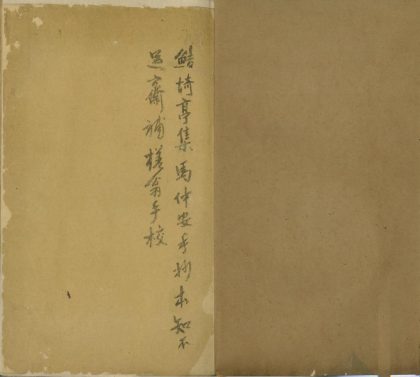 鲒埼亭集馬仲安手抄本知不
足齋補槎翁手校